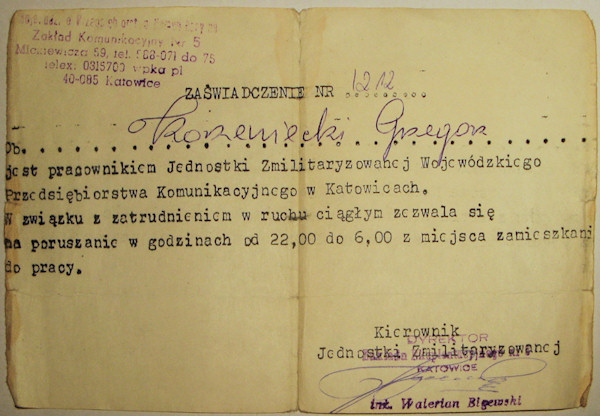 Zakład Komunikacyjny Nr 5
Mickiewicza 59, tel. 588-071 do 75
telex: 0315700 wpka pl
40-085 Katowice
ZAŚWIADCZENIE NR 1212
Ob. Korzeniecki Grzegorz
jest pracownikiem Jednostki Zmilitaryzowanej Wojewódzkiego
Przedsiębiorstwa Komunikacyjnego w Katowicach.
W związku z zatrudnieniem w ruchu ciągłym zezwala się
na poruszanie w godzinach od 22,00 do 6,00 z miejsca zamieszkani
do pracy.
Kierownik
DYREKTOR
Jednostki Zmilitaryzowanej
KATOWICE
inż. Walerian